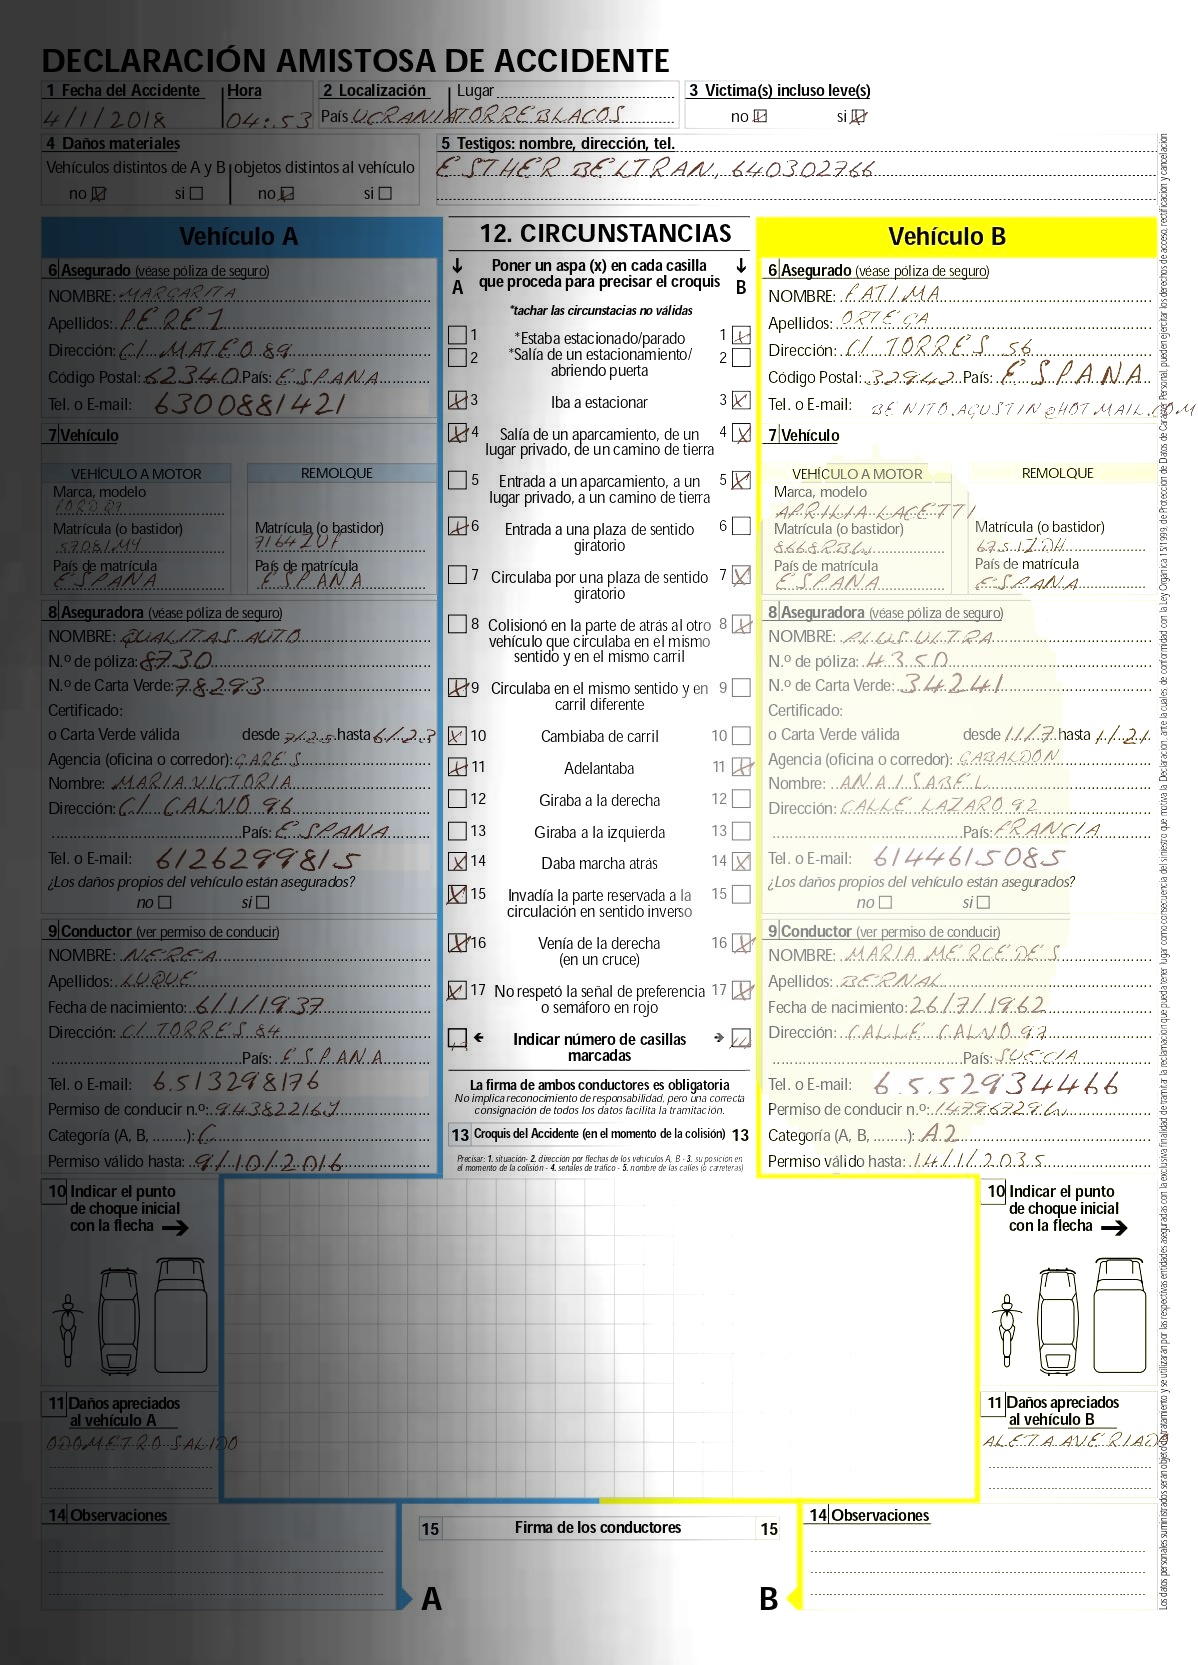 DECLARACIÓN AMISTOSA DE ACCIDENTE
1 Fecha del Accidente Hora 2 Localización Lugar 3 Victima(s) incluso leve(s)
4/1/2018 04:53 País UCRANIA TORREBLACOS no si
4 Daños materiales
Vehículos distintos de A y B objetos distintos al vehículo
no si no si
5 Testigos: nombre, dirección, tel.
ESTHER BELTRAN, 640302766
Vehículo A
6 Asegurado (véase póliza de seguro)
NOMBRE: MARGARITA
Apellidos: PEREZ
Dirección: C/ MATEO 89
Código Postal: 62340 País: ESPANA
Tel. o E-mail: 6300881421
7 Vehículo
VEHÍCULO A MOTOR REMOLQUE
Marca, modelo
Matrícula (o bastidor) Matrícula (o bastidor)
5708LMY 7164ZUF
País de matrícula País de matrícula
ESPANA ESPANA
8 Aseguradora (véase póliza de seguro)
NOMBRE: QUALITAS AUTO
N.º de póliza: 8730
N.º de Carta Verde: 78293
Certificado:
o Carta Verde válida desde 7/25 hasta 6/23
Agencia (oficina o corredor): GARES
Nombre: MARIA VICTORIA
Dirección: C/ CALVO 96
País: ESPANA
Tel. o E-mail: 6126299815
¿Los daños propios del vehículo están asegurados?
no si
9 Conductor (ver permiso de conducir)
NOMBRE: NEREA
Apellidos: LUQUE
Fecha de nacimiento: 6/1/1937
Dirección: C/ TORRES 84
País: ESPANA
Tel. o E-mail: 6513298176
Permiso de conducir n.º: 94382216J
Categoría (A, B, ........): C
Permiso válido hasta: 9/10/2016
10 Indicar el punto
de choque inicial
con la flecha
11 Daños apreciados
al vehículo A
ODOMETRO SALIDO
14 Observaciones
12. CIRCUNSTANCIAS
A Poner un aspa (x) en cada casilla B
que proceda para precisar el croquis
*tachar las circunstacias no válidas
1 *Estaba estacionado/parado 1
2 *Salía de un estacionamiento/ 2
abriendo puerta
3 Iba a estacionar 3
4 Salía de un aparcamiento, de un 4
lugar privado, de un camino de tierra
5 Entrada a un aparcamiento, a un 5
lugar privado, a un camino de tierra
6 Entrada a una plaza de sentido 6
giratorio
7 Circulaba por una plaza de sentido 7
giratorio
8 Colisionó en la parte de atrás al otro 8
vehículo que circulaba en el mismo
sentido y en el mismo carril
9 Circulaba en el mismo sentido y en 9
carril diferente
10 Cambiaba de carril 10
11 Adelantaba 11
12 Giraba a la derecha 12
13 Giraba a la izquierda 13
14 Daba marcha atrás 14
15 Invadía la parte reservada a la 15
circulación en sentido inverso
16 Venía de la derecha 16
(en un cruce)
17 No respetó la señal de preferencia 17
o semáforo en rojo
Indicar número de casillas
marcadas
La firma de ambos conductores es obligatoria
No implica reconocimiento de responsabilidad, pero una correcta
consignación de todos los datos facilita la tramitación.
13 Croquis del Accidente (en el momento de la colisión) 13
Precisar: 1. situación- 2. dirección por flechas de los vehículos A, B - 3. su posición en
el momento de la colisión - 4. señales de tráfico - 5. nombre de las calles (o carreteras)
15 Firma de los conductores 15
A B
Vehículo B
6 Asegurado (véase póliza de seguro)
NOMBRE: FATIMA
Apellidos: ORTEGA
Dirección: C/ TORRES 56
Código Postal: 32942 País: ESPANA
Tel. o E-mail: BENITO.AGUSTIN@HOTMAIL.COM
7 Vehículo
VEHÍCULO A MOTOR REMOLQUE
Marca, modelo
APRILIA LACETTI
Matrícula (o bastidor) Matrícula (o bastidor)
8668RBW 6751ZDH
País de matrícula País de matrícula
ESPANA ESPANA
8 Aseguradora (véase póliza de seguro)
NOMBRE: PLUS ULTRA
N.º de póliza: 4350
N.º de Carta Verde: 34241
Certificado:
o Carta Verde válida desde 11/7 hasta 1/21
Agencia (oficina o corredor): GABALDON
Nombre: ANA ISABEL
Dirección: CALLE LAZARO 92
País: FRANCIA
Tel. o E-mail: 6144615085
¿Los daños propios del vehículo están asegurados?
no si
9 Conductor (ver permiso de conducir)
NOMBRE: MARIA MERCEDES
Apellidos: BERNAL
Fecha de nacimiento: 26/7/1962
Dirección: CALLE CALVO 97
País: SUECIA
Tel. o E-mail: 6552934466
Permiso de conducir n.º: 14796729W
Categoría (A, B, ........): A2
Permiso válido hasta: 14/1/2035
10 Indicar el punto
de choque inicial
con la flecha
11 Daños apreciados
al vehículo B
ALETA AVERIADA
14 Observaciones